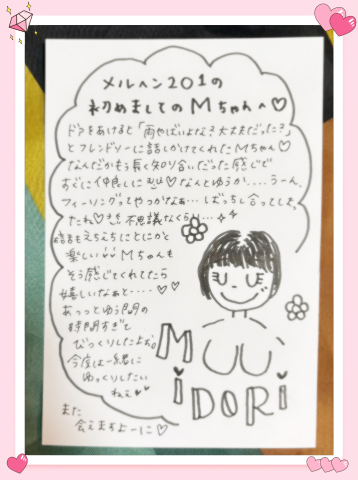 メルヘン201の
初めましてのMちゃんへ♡
ドアをあけると「雨やばいよね?大丈夫だった?」
とフレンドリーに話しかけてくれたMちゃん♡
なんだかもう長く知り合いだった感じで
すぐに仲良しに♡なんとゆうか....うーん、
フィーリングってやつかなぁ…ばっちし合ってしまっ
たね♡不思議なくらい…
話もえちえちもとにかく
楽しい Mちゃんも
そう感じてくれてたら
嬉しいなぁと....♡♡
あっっとゆう間の
時間すぎて
びっくりしたよぉ。
今度は一緒に
ゆっくりしたい
ねぇ♥♥
また
会えますよーに♡
MiDORi